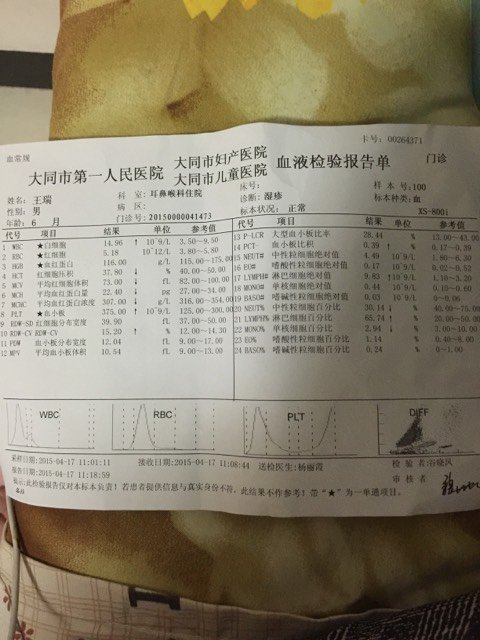 卡号: 00264371
血常规
大同市第一人民医院 大同市妇产医院 大同市儿童医院 血液检验报告单 门诊
姓名: 王瑞 科室: 耳鼻喉科住院 床号: 样本号: 100
性别: 男 病区: 诊断: 湿疹 标本种类: 血
年龄: 6 月 门诊号: 20150000041473 标本状况: 正常 XS-800i
代号 项目 结果 单位 参考值
1 WBC ★白细胞 14.96 ↑ 10^9/L 3.50~9.50
2 RBC ★红细胞 5.18 10^12/L 3.80~5.80
3 HGB ★血红蛋白 116.00 g/L 115.00~175.00
4 HCT 红细胞压积 37.80 ↓ % 40.00~50.00
5 MCV 平均红细胞体积 73.00 ↓ fL 82.00~100.00
6 MCH 平均红蛋白量 22.40 ↓ pg 27.00~34.00
7 MCHC 平均红红蛋白浓度 307.00 ↓ g/L 316.00~354.00
8 PLT ★血小板 375.00 ↑ 10^9/L 125.00~300.00
9 RDW-SD 红细胞分布宽度 39.90 fL 37.00~50.00
10 RDW-CV RDW-CV 15.20 ↑ % 12.00~14.30
11 PDW 血小板分布宽度 12.04 fL 9.00~17.00
12 MPV 平均血小板体积 10.54 fL 9.00~13.00
项目 结果 单位 参考值
13 P-LCR 大型血小板比率 28.44 % 13.00~43.00
14 PCT- 血小板比积 0.39 ↑ %
15 NEUT# 中性粒细胞绝对值 4.49 10^9/L 1.80~6.30
16 EO# 嗜酸性粒细胞绝对值 0.17 10^9/L 0.02~0.52
17 LYMPH# 淋巴细胞绝对值 9.83 ↑ 10^9/L 1.10~3.20
18 MONO# 单核细胞绝对值 0.44 10^9/L
19 BASO# 嗜碱性粒细胞绝对值 0.03 10^9/L 0~0.06
20 NEUT% 中性粒细胞百分比 30.14 ↓ % 40.00~75.00
21 LYMPH% 淋巴细胞百分比 65.74 ↑ % 20.00~50.00
22 MONO% 单核细胞百分比 2.94 ↓ % 3.00~10.00
23 EO% 嗜酸性粒细胞百分比 1.14 % 0.40~8.00
24 BASO% 嗜碱性粒细胞百分比 0.24 % 0~1.00
WBC RBC PLT DIFF
采样日期: 2015-04-17 11:01:11 接收日期: 2015-04-17 11:08:44 送检医生: 杨丽霞 检验者: 谷晓凤
报告日期: 2015-04-17 11:18:59 审核者
提示: 此检验报告仅对本标本负责! 若患者提供信息与真实身份不符, 此结果不作参考! 带"★"为一单通项目。